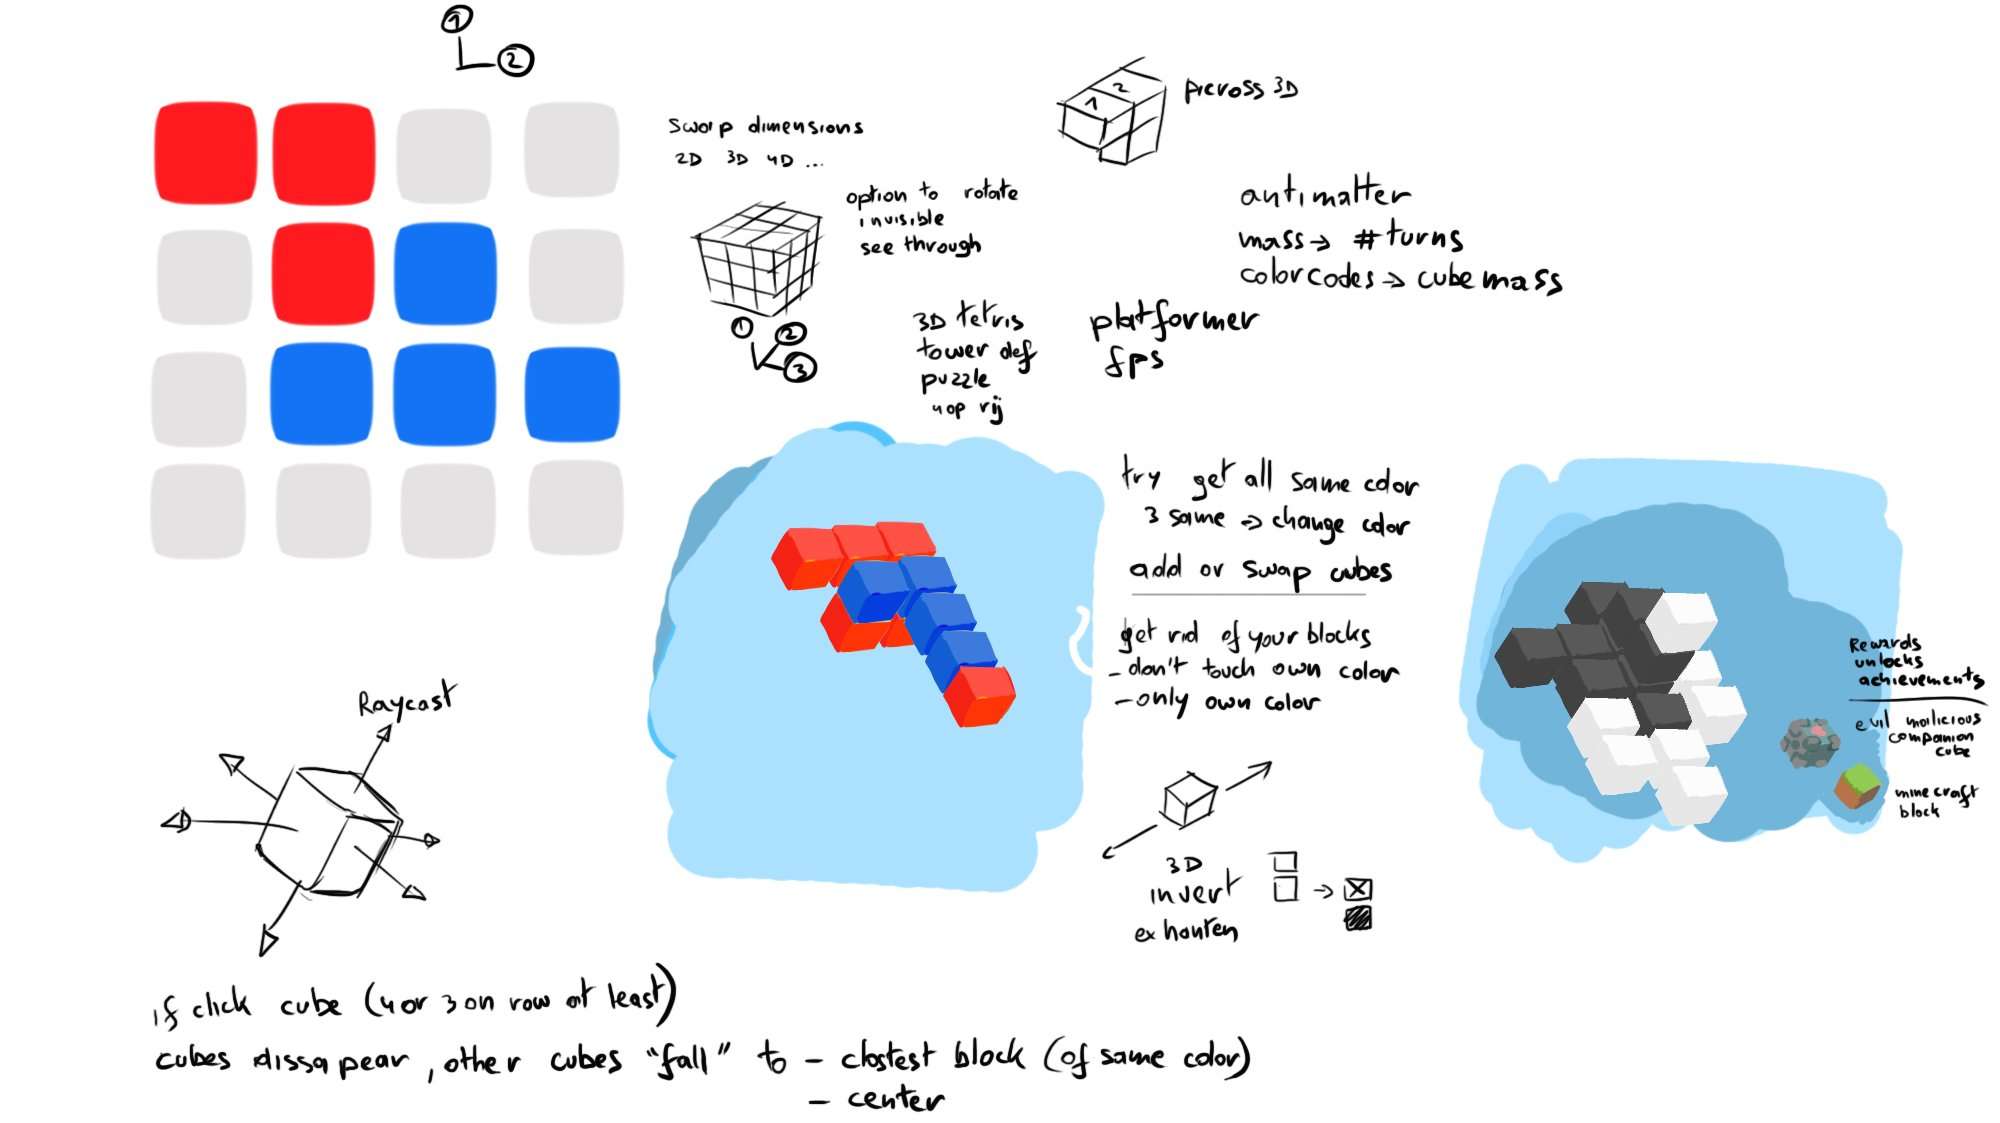 1
2
swap dimensions
2D 3D 4D ...
1 2
picross 3D
option to rotate
invisible
see through
1 2
3
antimatter
mass → # turns
colorcodes → cube mass
3D tetris
tower def
puzzle
4 op rij
platformer
fps
try get all same color
3 same → change color
add or swap cubes
get rid of your blocks
- don't touch own color
- only own color
Rewards
unlocks
achievements
evil malicious
companion
cube
minecraft
block
Raycast
3D
invert
if click cube (4 or 3 on row at least)
cubes dissapear, other cubes "fall" to - clostest block (of same color)
- center